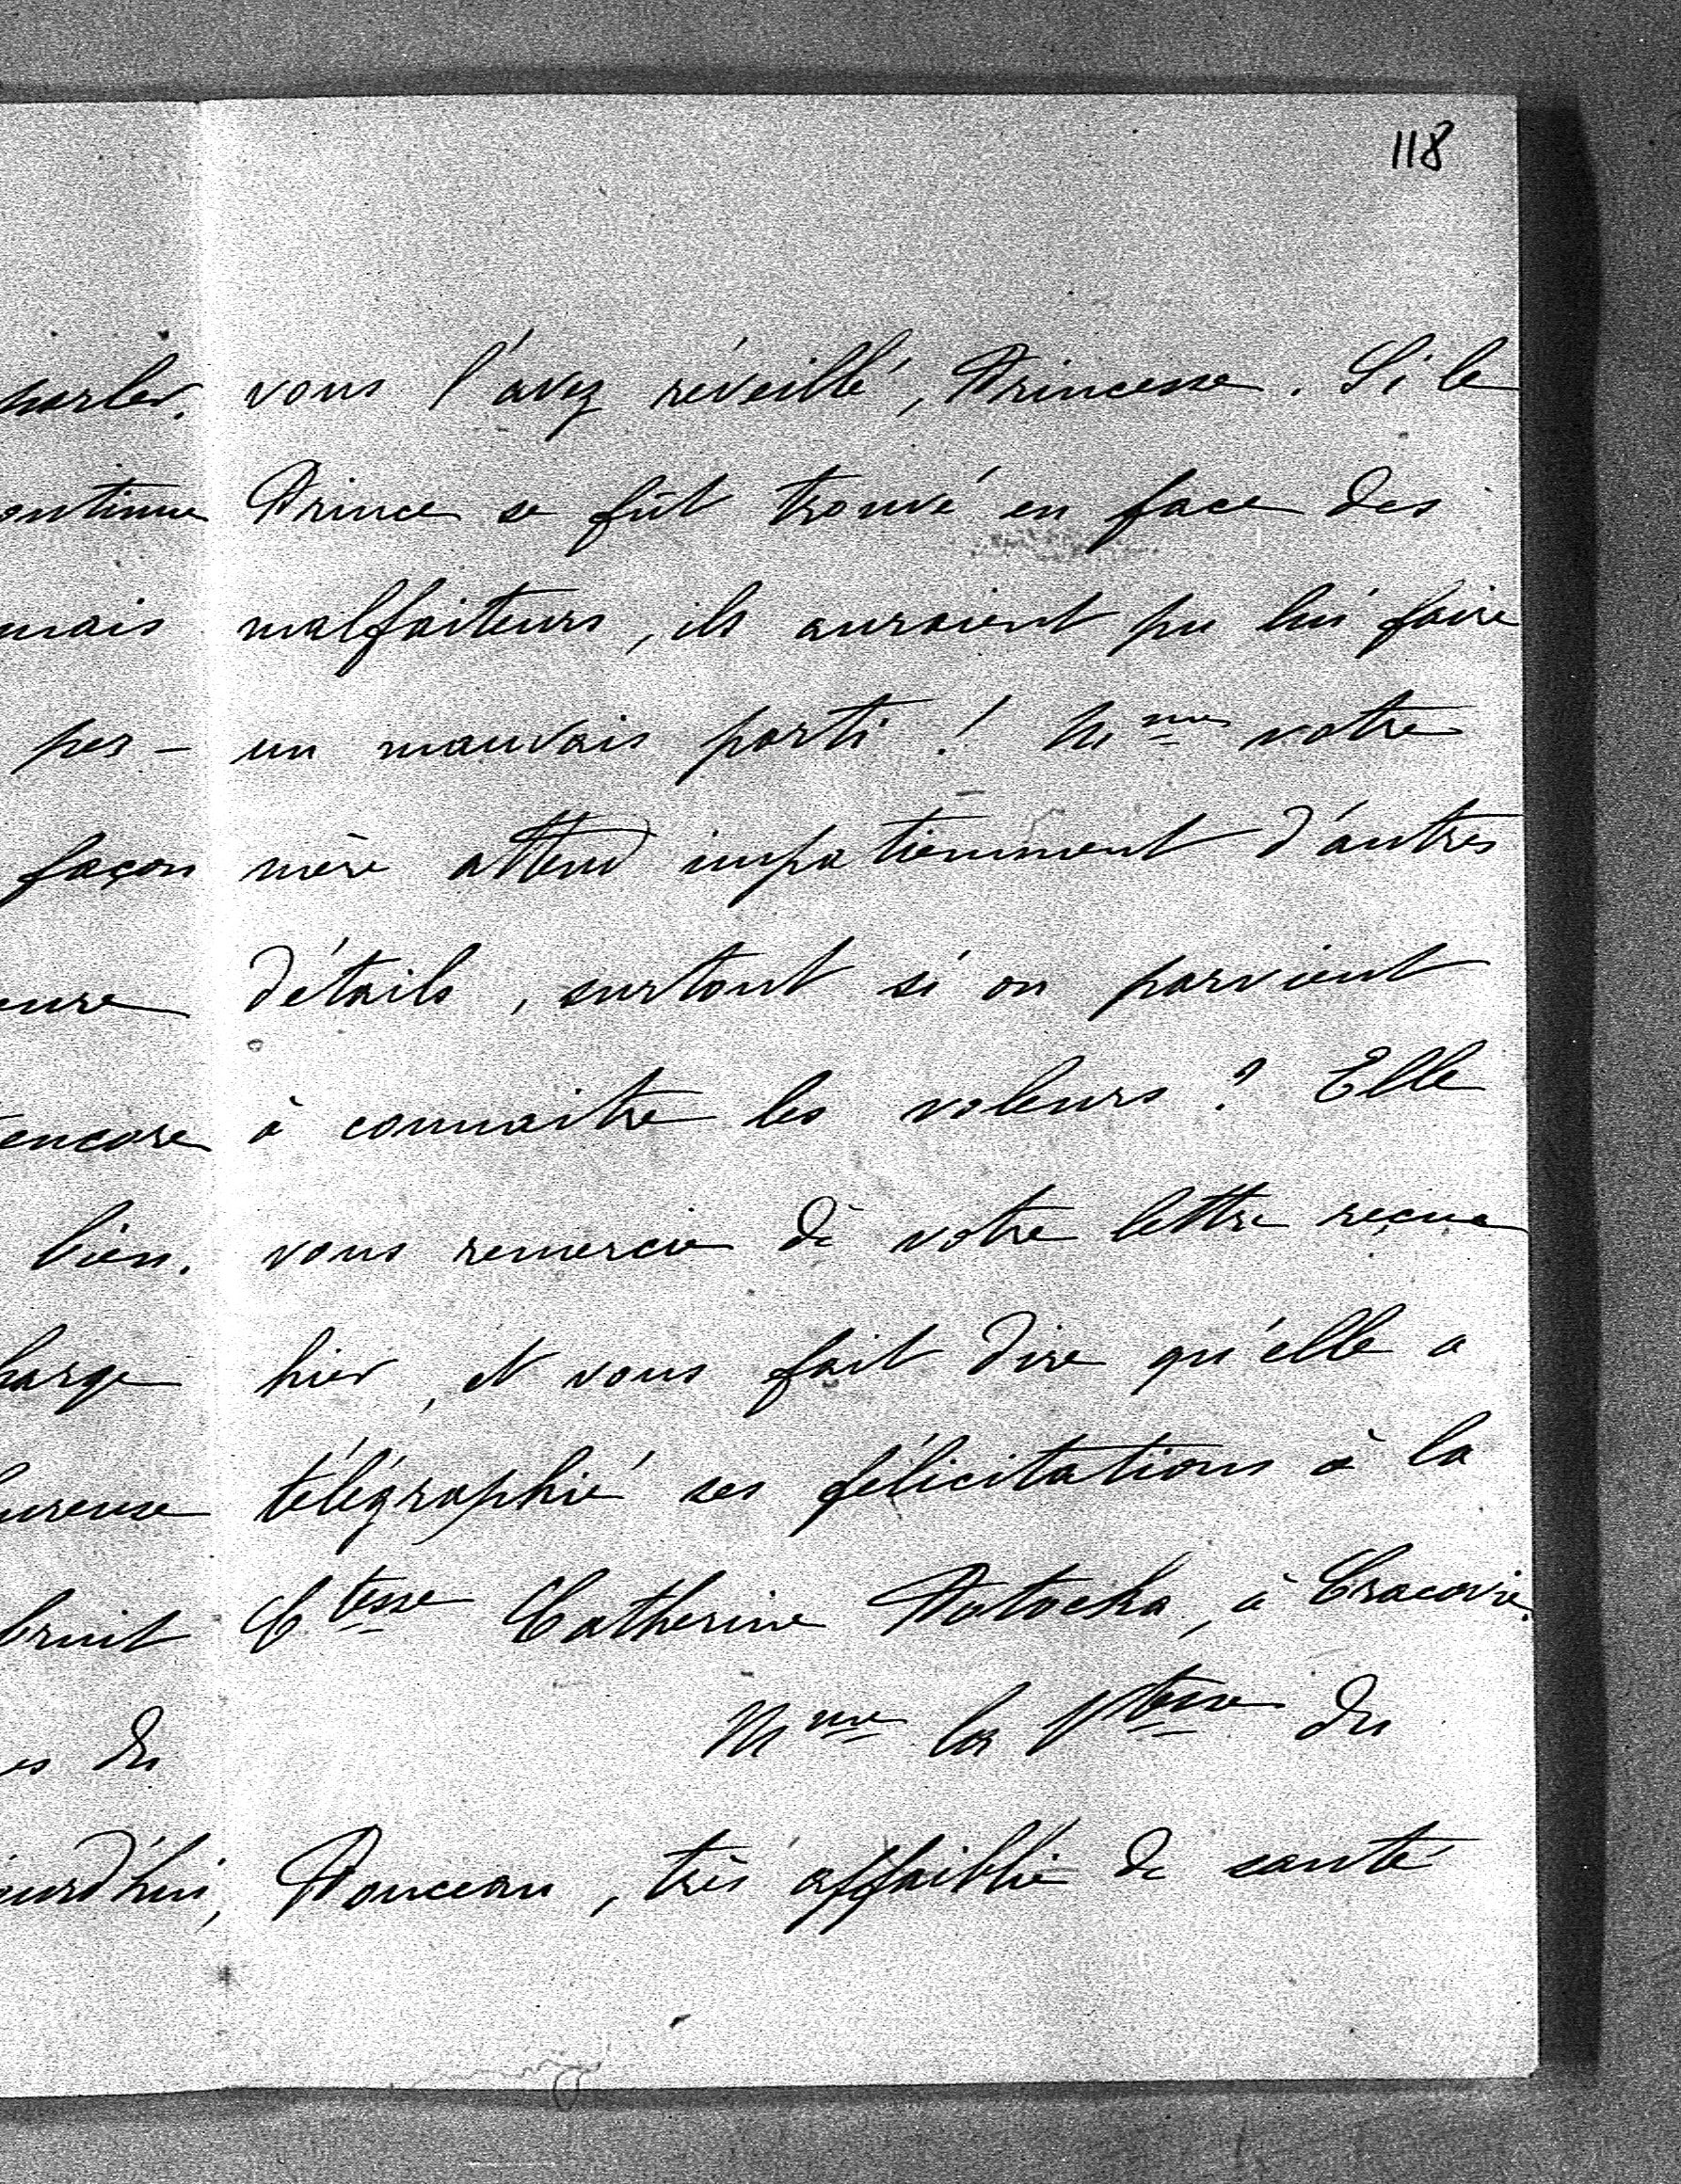 118
vous l'avez réveillé, Princesse. Si le
Prince se fût trouvé en face des
malfaiteurs, ils auraient pu lui faire
un mauvais parti ! Mme votre
mère attend impatiemment d'autres
détails, surtout si on parvient
à connaitre les voleurs ? Elle
vous remercie de votre lettre reçue
hier, et vous fait dire qu'elle a
télégraphié ses félicitations à la
Ctesse Catherine Potocka, à Cracovie.
Mme la Vtesse du
Ponceau, très affaiblie de santé
parler.
ontinue
mais
per-
façon
eure
encore
bien.
harge
ureuse
bruit
es du
ourd'hui,